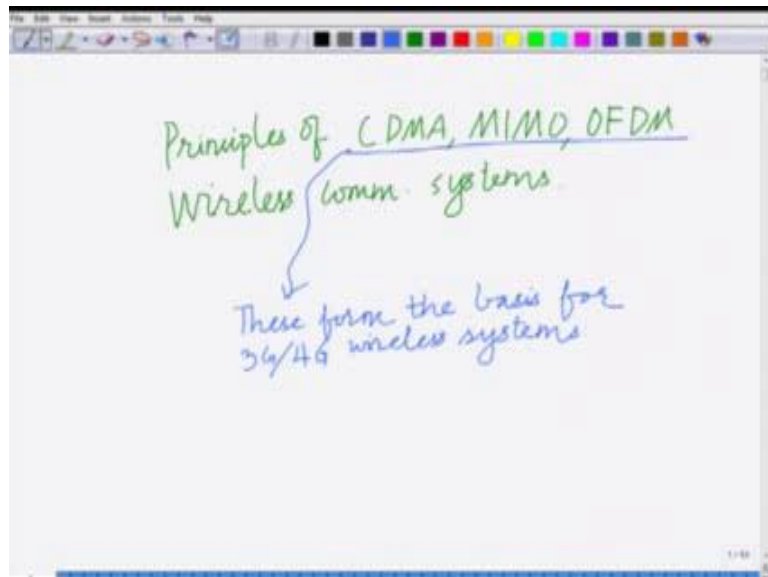 File Edit View Insert Actions Tools Help
Principles of CDMA, MIMO, OFDM
Wireless comm. systems.
These form the basis for
3G/4G wireless systems